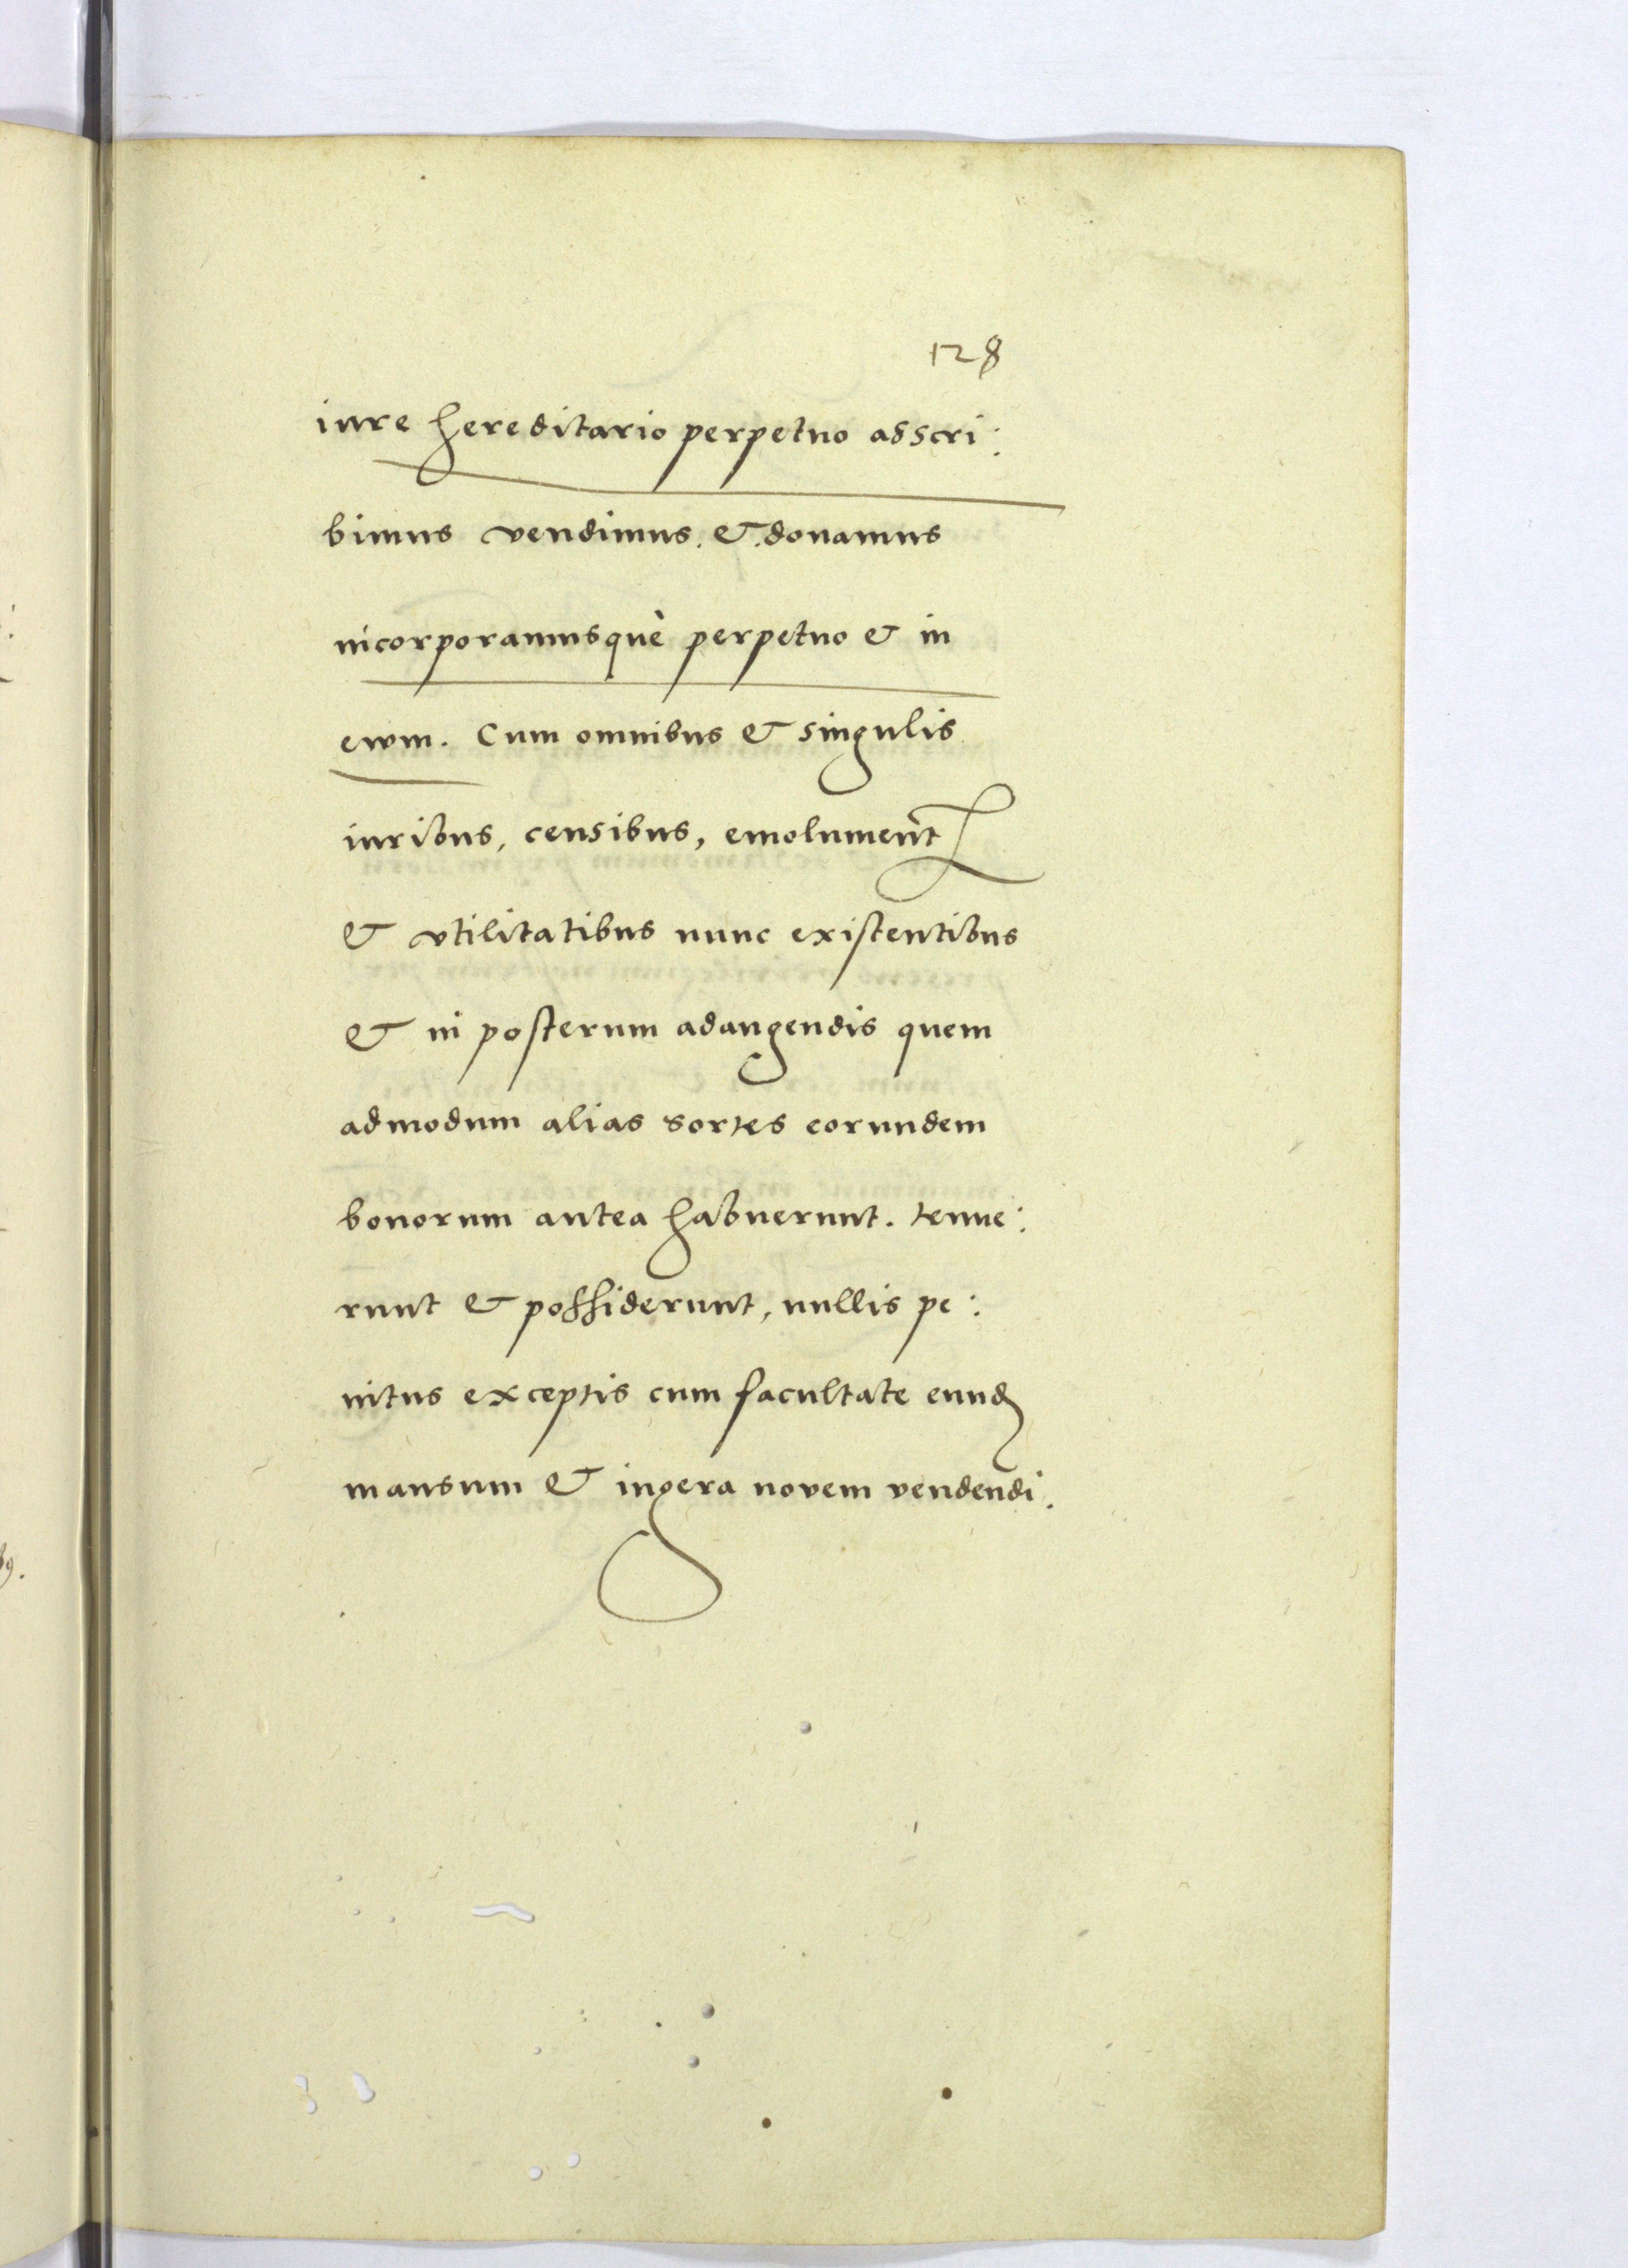 128
iure hereditario perpetuo asscri:
bimus vendimus. &. donamus
incorporamusquè perpetuo & in
ewm. Cum omnibus & singulis
iuribus, censibus, emolument
& vtilitatibus nunc existentibus
& in posterum adaugendis quem
admodum alias sortes eorundem
bonorum antea habuerunt. tenue:
runt & possiderunt, nullis pe:
nitus exceptis cum facultate eund
mansum & iugera novem vendendi.